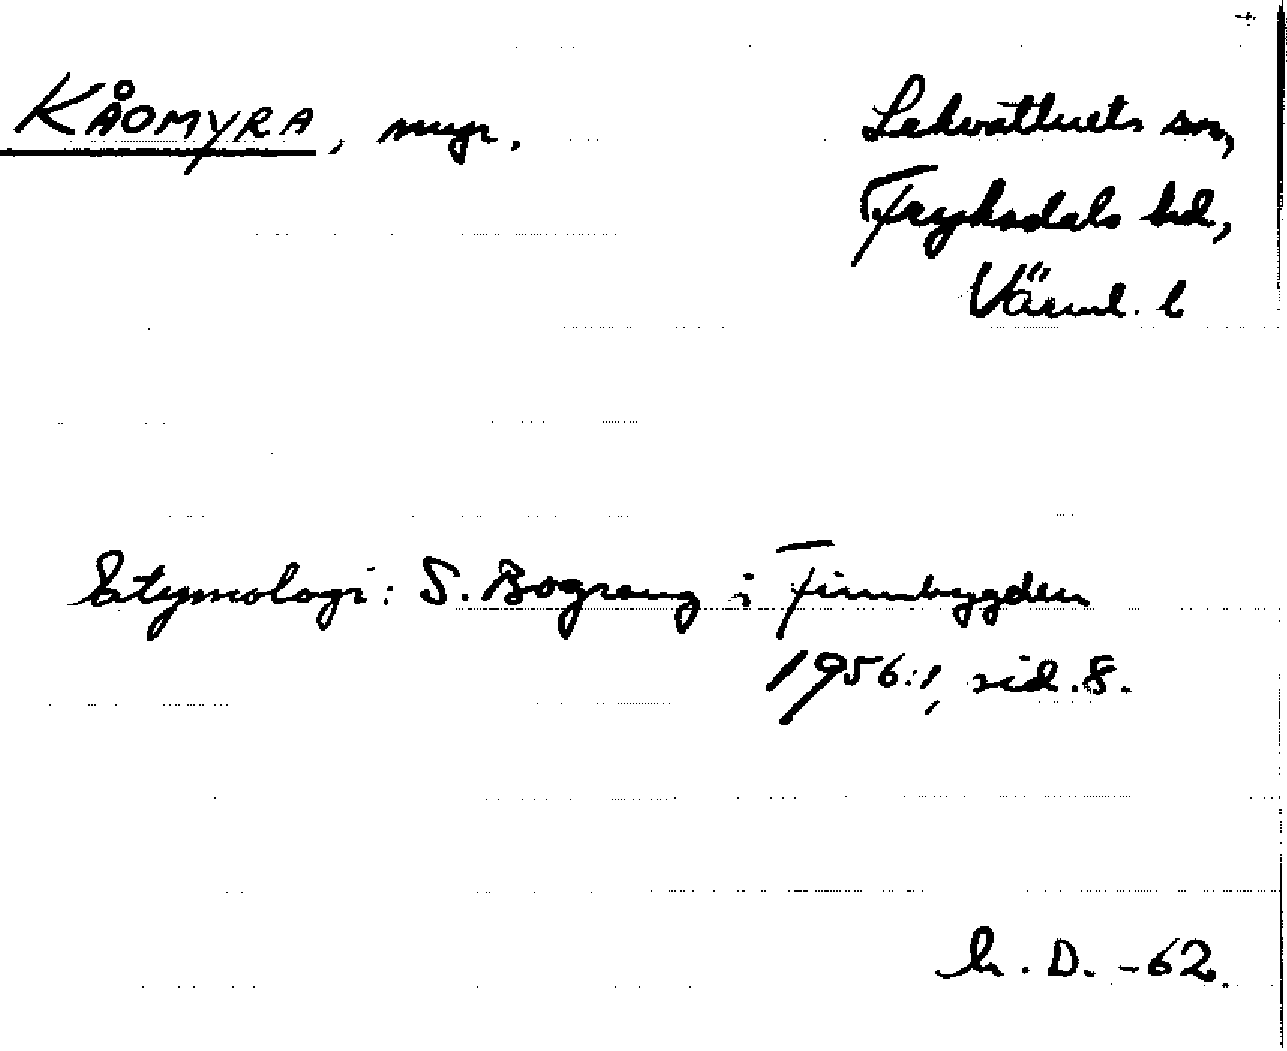 KÅOMYRA, myr.
Lekvattnets sn,
Fryksdals hd,
Värml. l
Etymologi: S. Bograng i Finnbygden
1956:1, sid. 8.
h. D. -62.